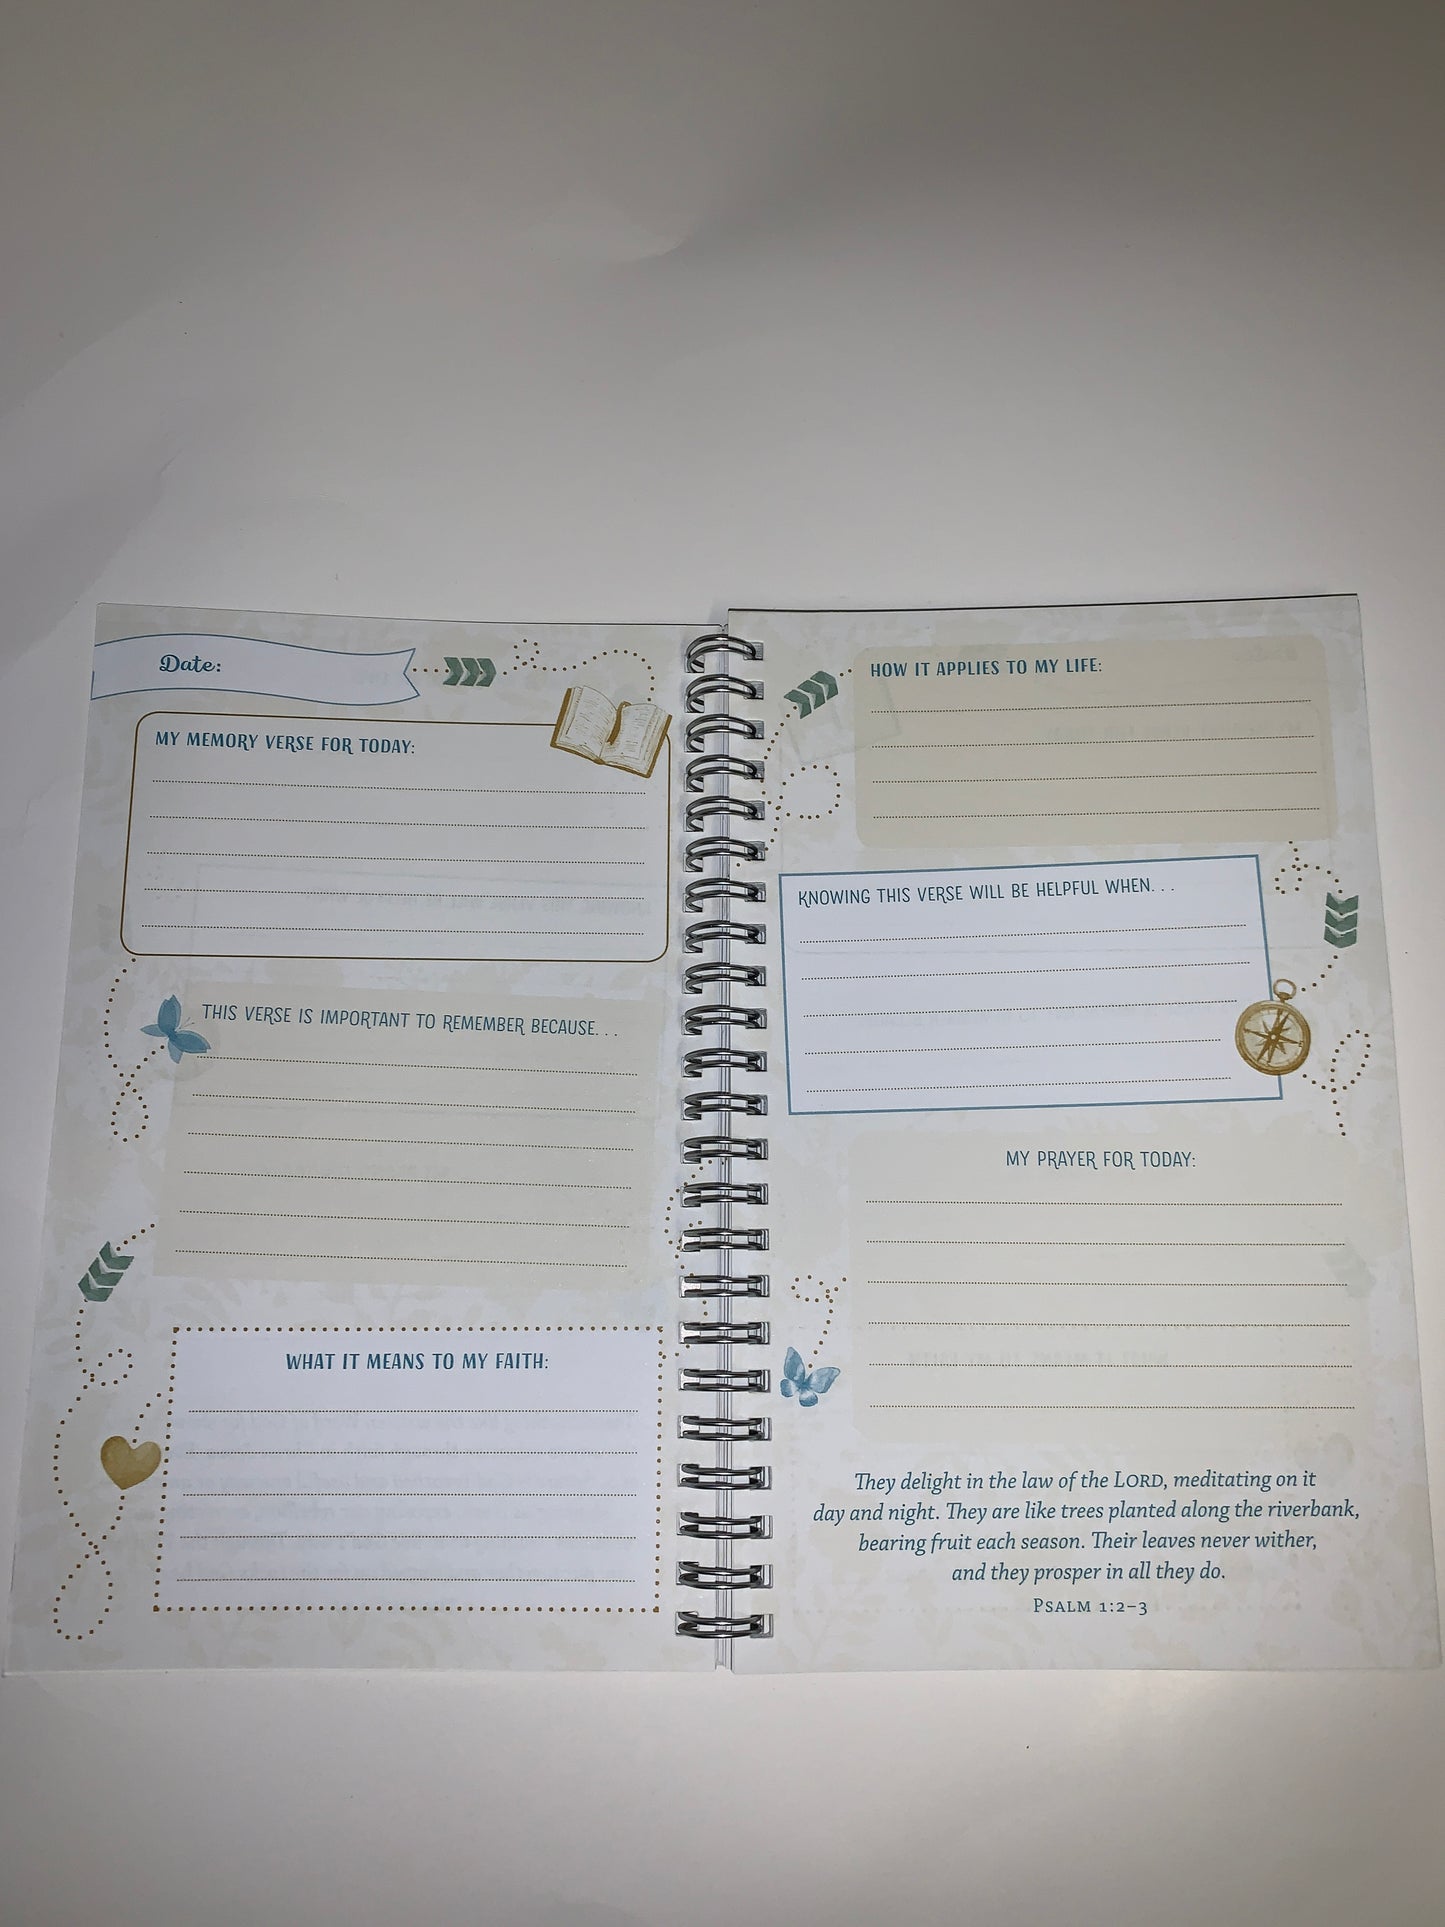 Date:
MY MEMORY VERSE FOR TODAY:
THIS VERSE IS IMPORTANT TO REMEMBER BECAUSE. . .
WHAT IT MEANS TO MY FAITH:
HOW IT APPLIES TO MY LIFE:
KNOWING THIS VERSE WILL BE HELPFUL WHEN. . .
MY PRAYER FOR TODAY:
They delight in the law of the LORD, meditating on it
day and night. They are like trees planted along the riverbank,
bearing fruit each season. Their leaves never wither,
and they prosper in all they do.
PSALM 1:2–3